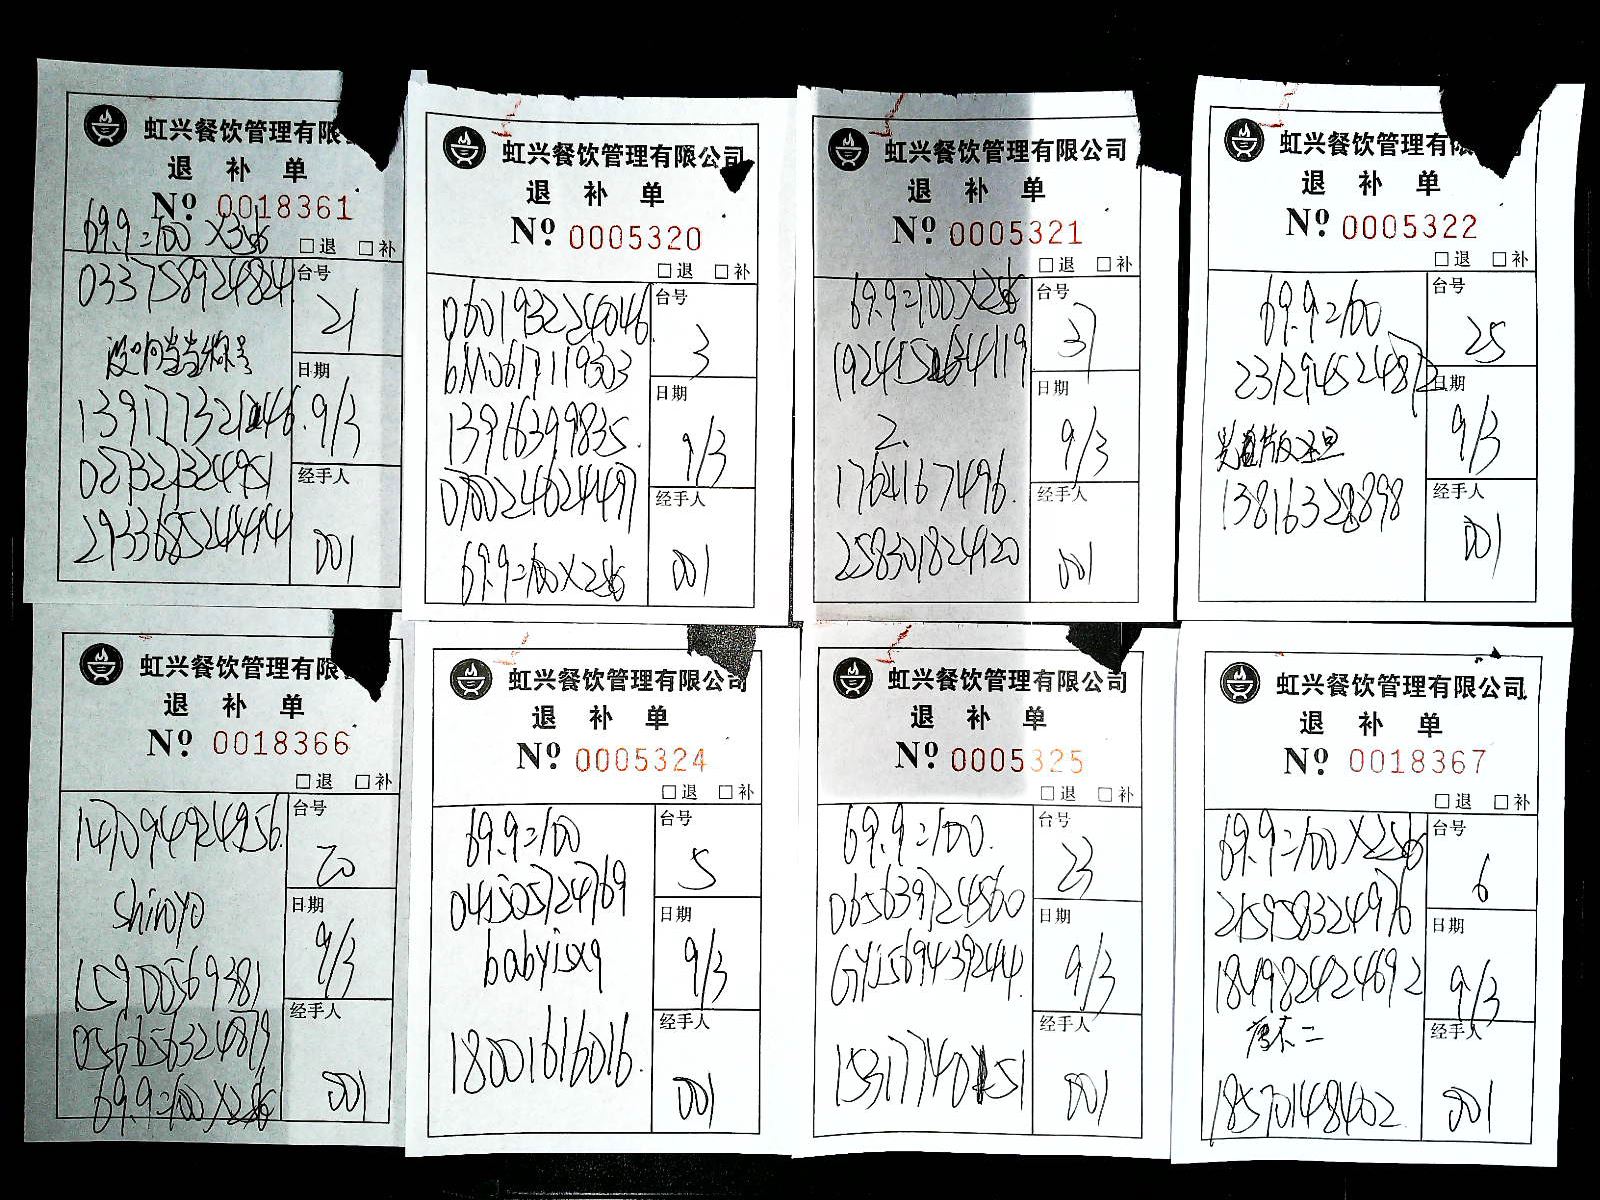 虹兴餐饮管理有限
退 补 单
Nº 0018361
69.9=100 ×3
□退 □补
033758924824
台号
21
日期
13917732146
9/3
027327324951
经手人
293368524494
001
虹兴餐饮管理有限公司
退 补 单
Nº 0005320
□退 □补
060193224046
台号
3
bM0617119303
日期
13916399835
9/3
070024624497
经手人
69.9=100×2
001
虹兴餐饮管理有限公司
退 补 单
Nº 0005321
□退 □补
69.9=100×2
台号
37
日期
2.
9/3
17621667496.
经手人
258301824120
001
虹兴餐饮管理有限公司
退 补 单
Nº 0005322
□退 □补
69.9=100
台号
25
231294524872
日期
9/3
13816328898
经手人
001
虹兴餐饮管理有限
退 补 单
Nº 0018366
□退 □补
147094924956
台号
20
shinoyo
日期
9/3
15900569381
经手人
056656324879
69.9=100×2
001
虹兴餐饮管理有限公司
退 补 单
Nº 0005324
□退 □补
69.9=100
台号
5
041505724769
日期
babyisxq
9/3
经手人
18001616016.
001
虹兴餐饮管理有限公司
退 补 单
Nº 0005325
□退 □补
69.9=100.
台号
23
065639724560
日期
9/3
经手人
001
虹兴餐饮管理有限公司
退 补 单
Nº 0018367
□退 □补
69.9=100×2
台号
6
215958324976
日期
184982424692
9/3
经手人
18570148402
001